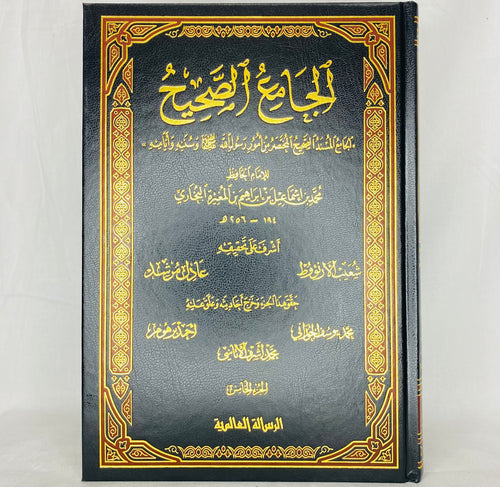 الجامع الصحيح
«الجامع المسند الصحيح المختصر من أمور رسول الله ﷺ وسننه وأيامه»
للإمام الحافظ
محمد بن إسماعيل بن إبراهيم بن المغيرة البخاري
١٩٤ - ٢٥٦ هـ
أشرف على تحقيقه
شعيب الأرنؤوط عادل مرشد
حقق هذا الجزء وخرج أحاديثه وعلق عليه
محمد يوسف الجوراني أحمد برهوم
محمد أشرف الأتاسي
الجزء الخامس
الرسالة العالمية